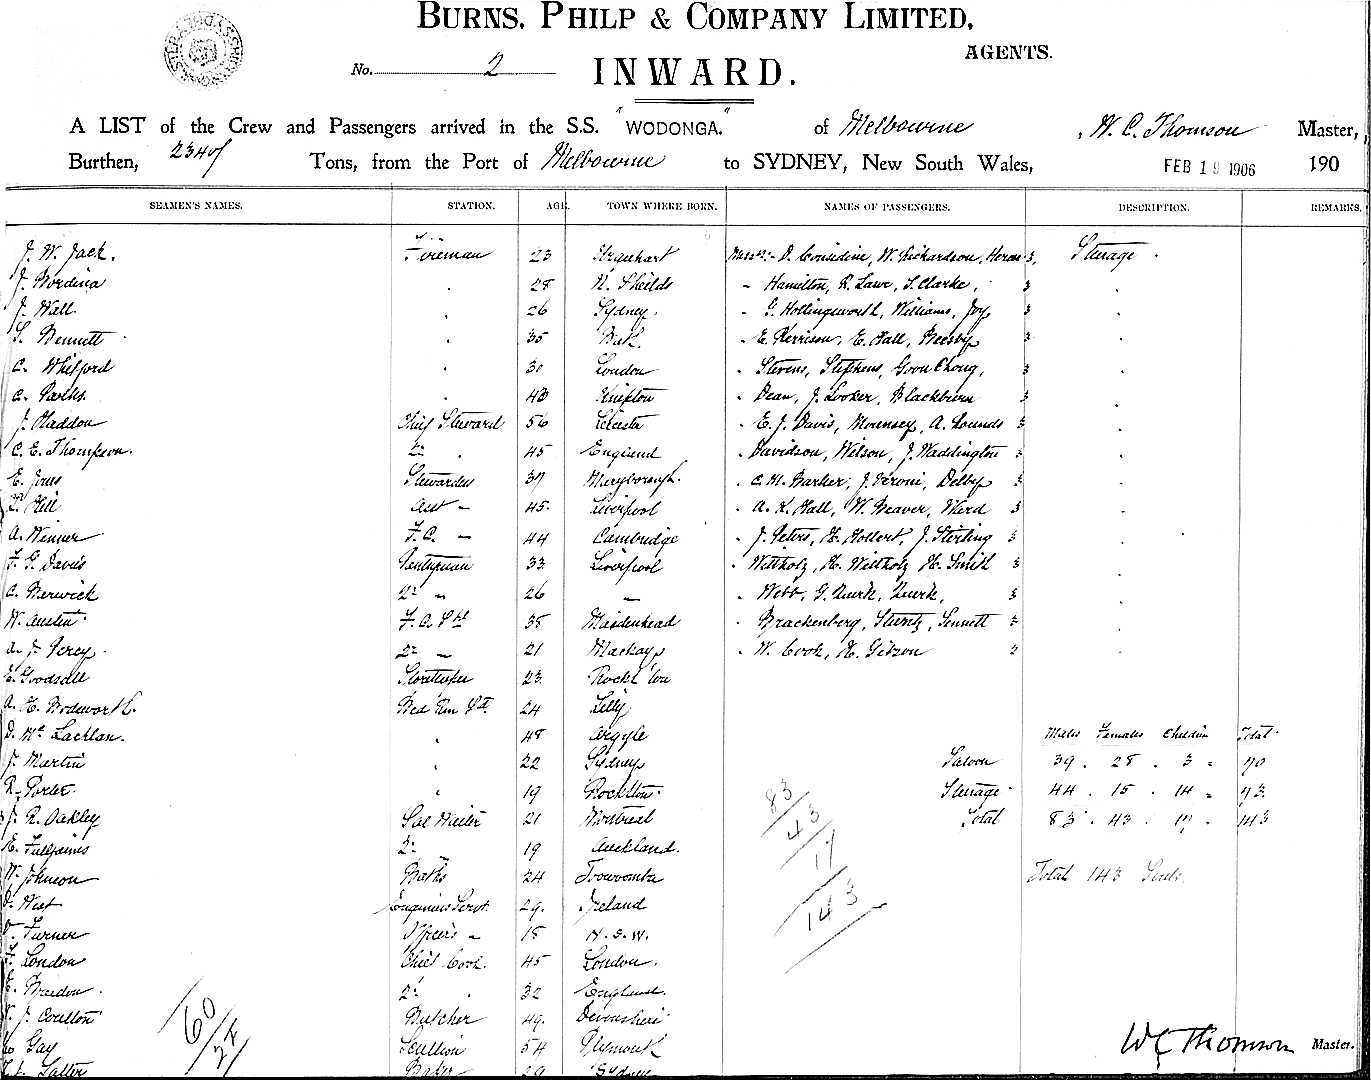 BURNS, PHILP & COMPANY LIMITED,
AGENTS.
No. 2
INWARD.
A LIST of the Crew and Passengers arrived in the S.S. "WODONGA." of Melbourne , W. C. Thomson Master,
Burthen, 2340 Tons, from the Port of Melbourne to SYDNEY, New South Wales, FEB 19 1906 190
SEAMEN'S NAMES. STATION. AGE. TOWN WHERE BORN. NAMES OF PASSENGERS. DESCRIPTION. REMARKS.
J. W. Jack. Fireman 23 Urquhart Messrs:- D. Considine, W. Richardson, Heron 3, Steerage
J. Bordina 28 N. Shields - Hamilton, R. Lawe, S. Clarke, 3
J. Wall 26 Sydney. - G. Hollingsworth, Williams, Joy 3
S. Bennett 35 - E. Kerrison, E. Hall, Beesby 3
C. Whifford 30 London Stevens, Stephens, Goon Chong, 3
C. Parks 43 Knipton Dean, J. Looker, Blackburn 3
J. Haddon Chief Steward 56 Leicester E. J. Davis, Mounsey, A. Lounds 3
C. E. Thompson. 2nd 45 England Davidson, Wilson, J. Waddington 3
E. Jones Stewardess 37 Maryborough. C. M. Barker, J. Veroni, Delby 3
Hill Asst - 45. Liverpool A. K. Hall, W. Beaver, Ward 3
A. Winner F.C. - 44 Cambridge J. Peters, H. Hollert, J. Stirling 3
F. G. Davis Pantryman 33 Liverpool Wittholz, H. Wittholz H. Smith 3
C. Berwick 2nd " 26 " Webb, G. Quirk, Quirk, 3
W. Austin F.C. Pt 35 Maidenhead Brackenberg, Sturtz, Sennett 3
A. J. Percy 2nd " 21 Mackay W. Cook, H. Gibson 2
E. Goodsall Storekeeper 23 Rockh'ton
A. H. Bodsworth. Bed Rm Std. 24 Lilly
D. McLachlan. 48 Argyle Males Females Children Total
J. Martin 22 Sydney Saloon 39 . 28 . 3 = 70
R. Porter. 19 Rockhton. Steerage 44 . 15 . 14 = 73
J. R. Oakley Sal Waiter 21 Montreal Total 83 . 43 . 17 . 143
83
43
17
143
H. Fulljames 2nd 19 Auckland.
W. Johnson Baths 24 Toowoomba Total 143 Souls
D. West Engineers Servt. 29. Ireland
Turner Officers " 18 N.S.W.
F. London Chief Cook. 45 London.
Bredon. 2nd 32 England.
J. Coulton Butcher 49. Devonshire
60/24
Gay Scullion 54 Plymouth
Salter Baker 29 Sydney
W C Thomson Master.